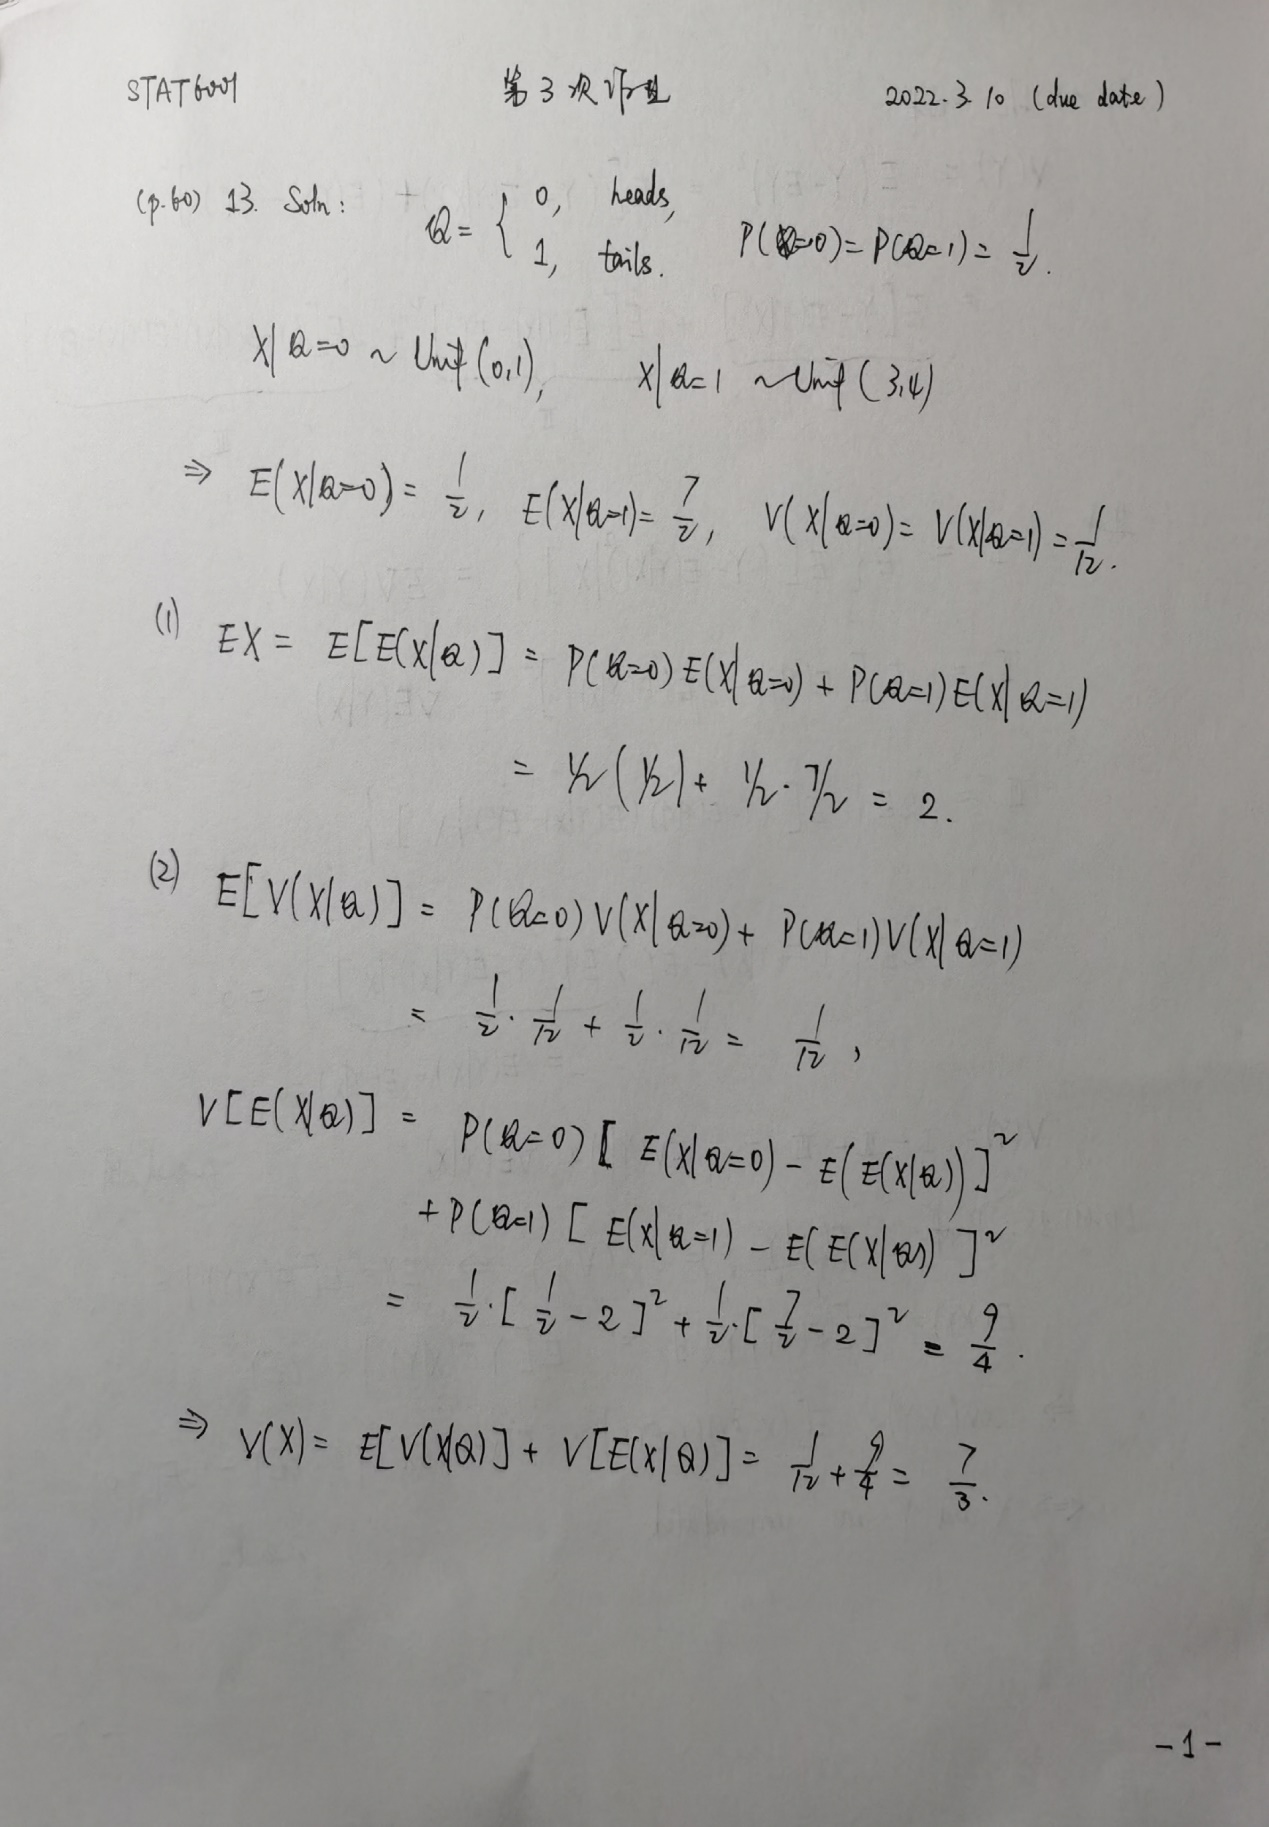 STAT6001 第3次作业 2022.3.10 (due date)
(p.60) 13. Soln: Q = { 0, heads, 1, tails. P(Q=0) = P(Q=1) = 1/2.
X|Q=0 ~ Unif(0,1), X|Q=1 ~ Unif(3,4)
⇒ E(X|Q=0) = 1/2, E(X|Q=1) = 7/2, V(X|Q=0) = V(X|Q=1) = 1/12.
(1) EX = E[E(X|Q)] = P(Q=0) E(X|Q=0) + P(Q=1) E(X|Q=1)
= 1/2 (1/2) + 1/2 · 7/2 = 2.
(2) E[V(X|Q)] = P(Q=0) V(X|Q=0) + P(Q=1) V(X|Q=1)
= 1/2 · 1/12 + 1/2 · 1/12 = 1/12,
V[E(X|Q)] = P(Q=0) [ E(X|Q=0) - E(E(X|Q)) ]²
+ P(Q=1) [ E(X|Q=1) - E(E(X|Q)) ]²
= 1/2 · [ 1/2 - 2 ]² + 1/2 · [ 7/2 - 2 ]² = 9/4.
⇒ V(X) = E[V(X|Q)] + V[E(X|Q)] = 1/12 + 9/4 = 7/3.
-1-